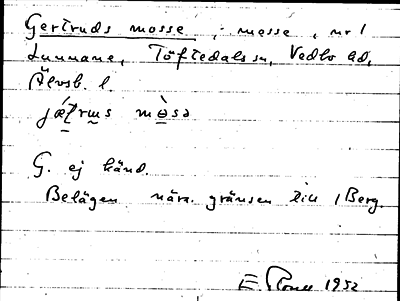 Gertruds mosse, : mosse, nr 1
Lunnane, Töftedals sn, Vedbo hd,
Älvsb. l.
G. ej känd.
Belägen nära gränsen till 1 Berg.
1952